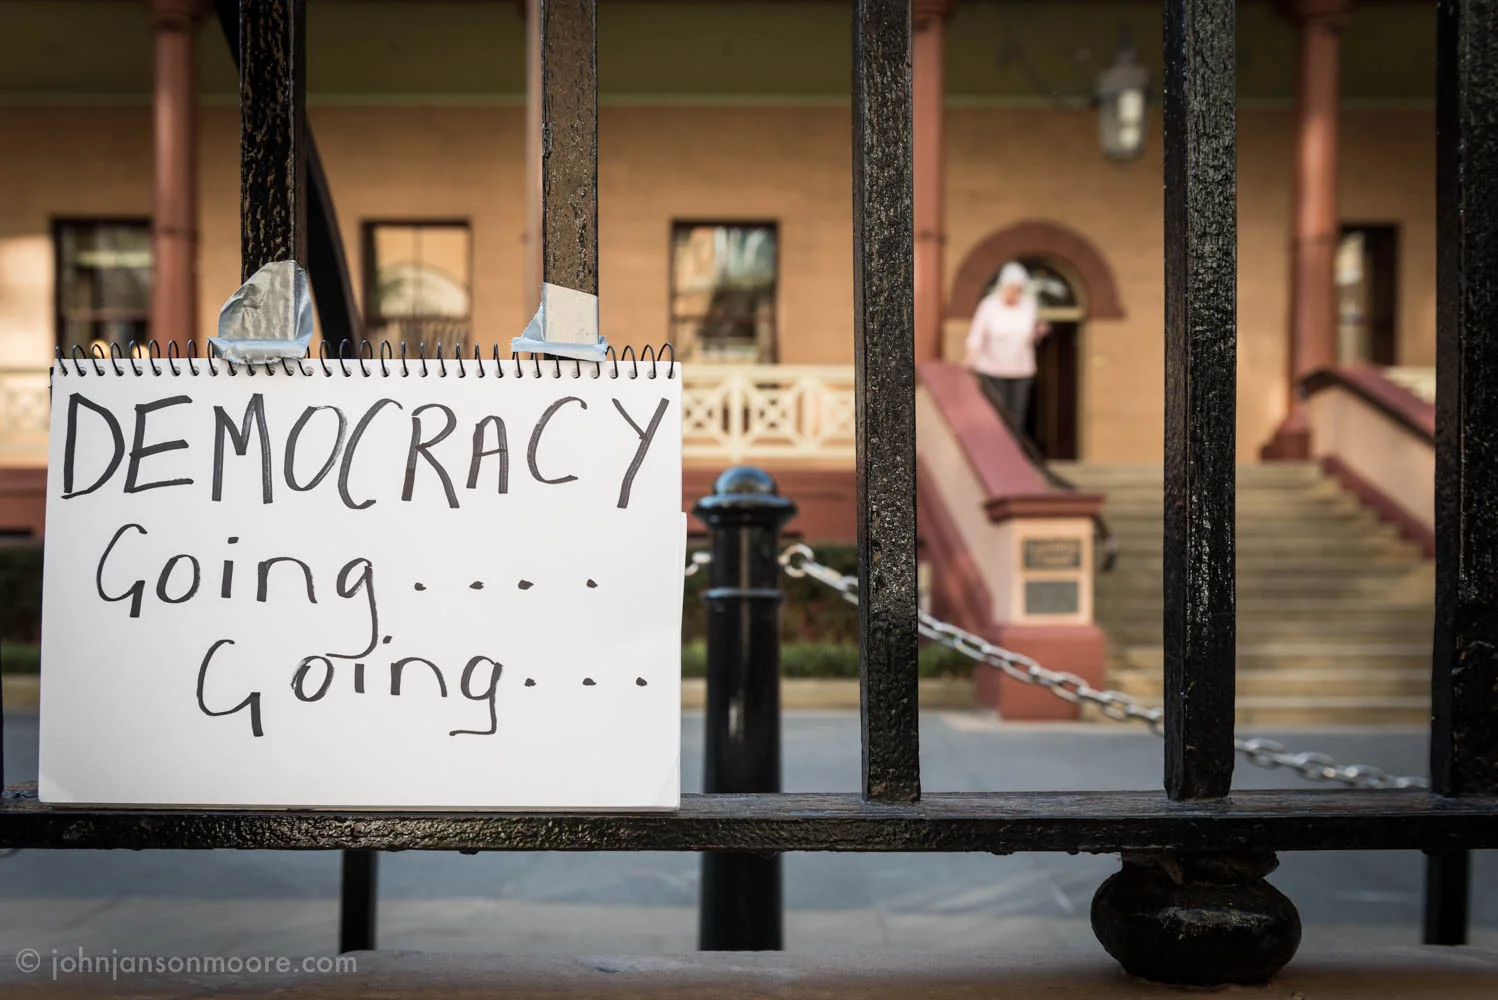 DEMOCRACY
Going....
Going...
© johnjansonmoore.com